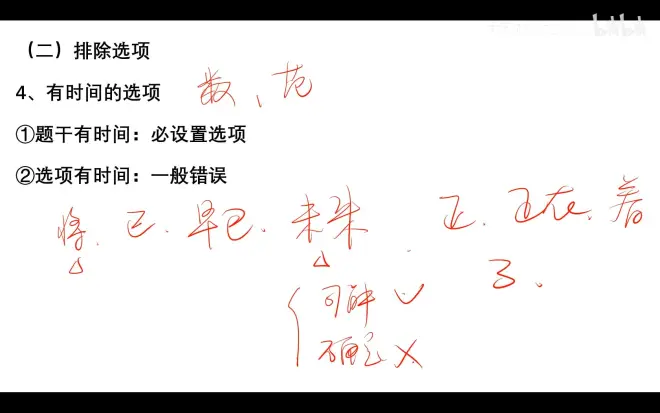 （二）排除选项
4、有时间的选项 数、范
①题干有时间：必设置选项
②选项有时间：一般错误
将、已、早已、未来 正、正在、着
了、
可能 ✓
不确定 ✗